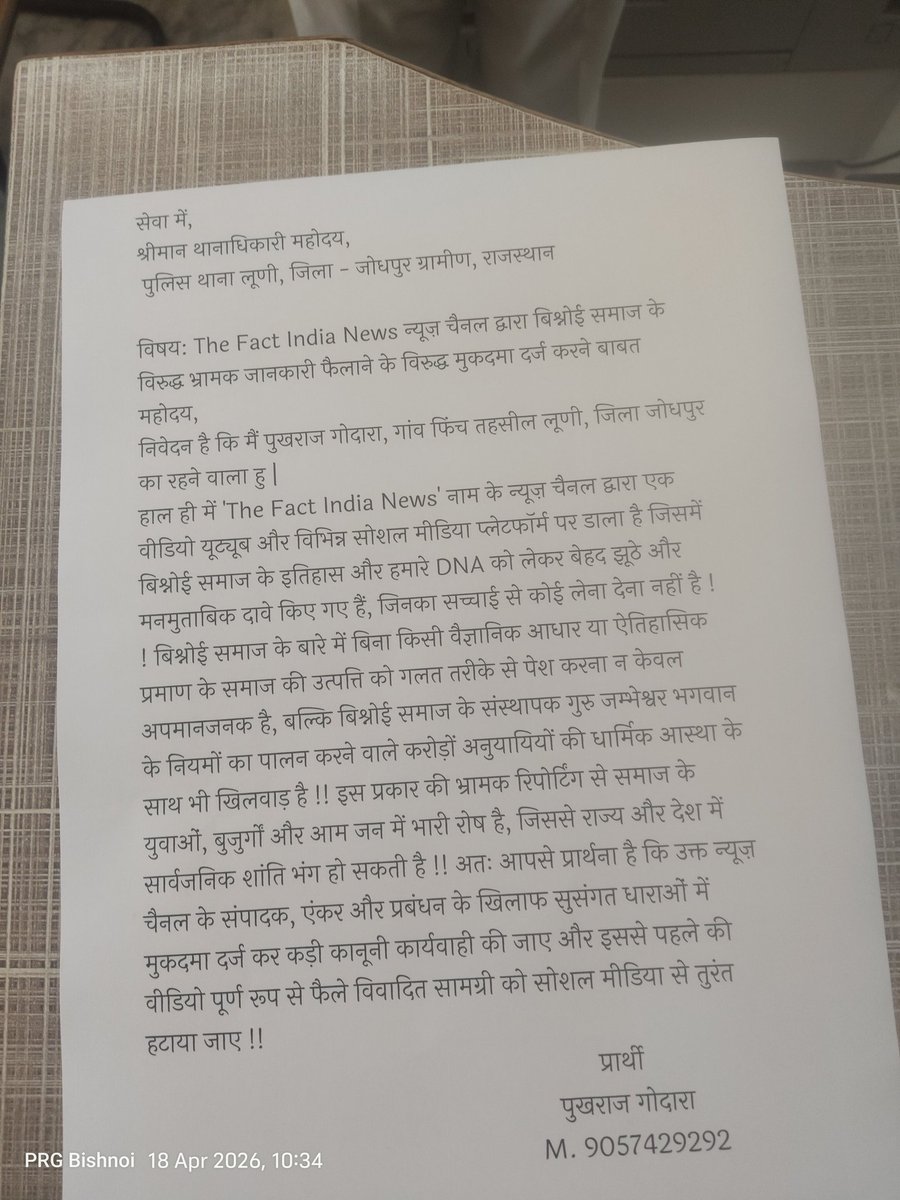 सेवा में,
श्रीमान थानाधिकारी महोदय,
पुलिस थाना लूणी, जिला - जोधपुर ग्रामीण, राजस्थान
विषय: The Fact India News न्यूज़ चैनल द्वारा बिश्नोई समाज के
विरुद्ध भ्रामक जानकारी फैलाने के विरुद्ध मुकदमा दर्ज करने बाबत
महोदय,
निवेदन है कि मैं पुखराज गोदारा, गांव फिंच तहसील लूणी, जिला जोधपुर
का रहने वाला हु |
हाल ही में 'The Fact India News' नाम के न्यूज़ चैनल द्वारा एक
वीडियो यूट्यूब और विभिन्न सोशल मीडिया प्लेटफॉर्म पर डाला है जिसमें
बिश्नोई समाज के इतिहास और हमारे DNA को लेकर बेहद झूठे और
मनमुताबिक दावे किए गए हैं, जिनका सच्चाई से कोई लेना देना नहीं है !
! बिश्नोई समाज के बारे में बिना किसी वैज्ञानिक आधार या ऐतिहासिक
प्रमाण के समाज की उत्पत्ति को गलत तरीके से पेश करना न केवल
अपमानजनक है, बल्कि बिश्नोई समाज के संस्थापक गुरु जम्भेश्वर भगवान
के नियमों का पालन करने वाले करोड़ों अनुयायियों की धार्मिक आस्था के
साथ भी खिलवाड़ है !! इस प्रकार की भ्रामक रिपोर्टिंग से समाज के
युवाओं, बुजुर्गों और आम जन में भारी रोष है, जिससे राज्य और देश में
सार्वजनिक शांति भंग हो सकती है !! अतः आपसे प्रार्थना है कि उक्त न्यूज़
चैनल के संपादक, एंकर और प्रबंधन के खिलाफ सुसंगत धाराओं में
मुकदमा दर्ज कर कड़ी कानूनी कार्यवाही की जाए और इससे पहले की
वीडियो पूर्ण रूप से फैले विवादित सामग्री को सोशल मीडिया से तुरंत
हटाया जाए !!
प्रार्थी
पुखराज गोदारा
M. 9057429292
PRG Bishnoi 18 Apr 2026, 10:34